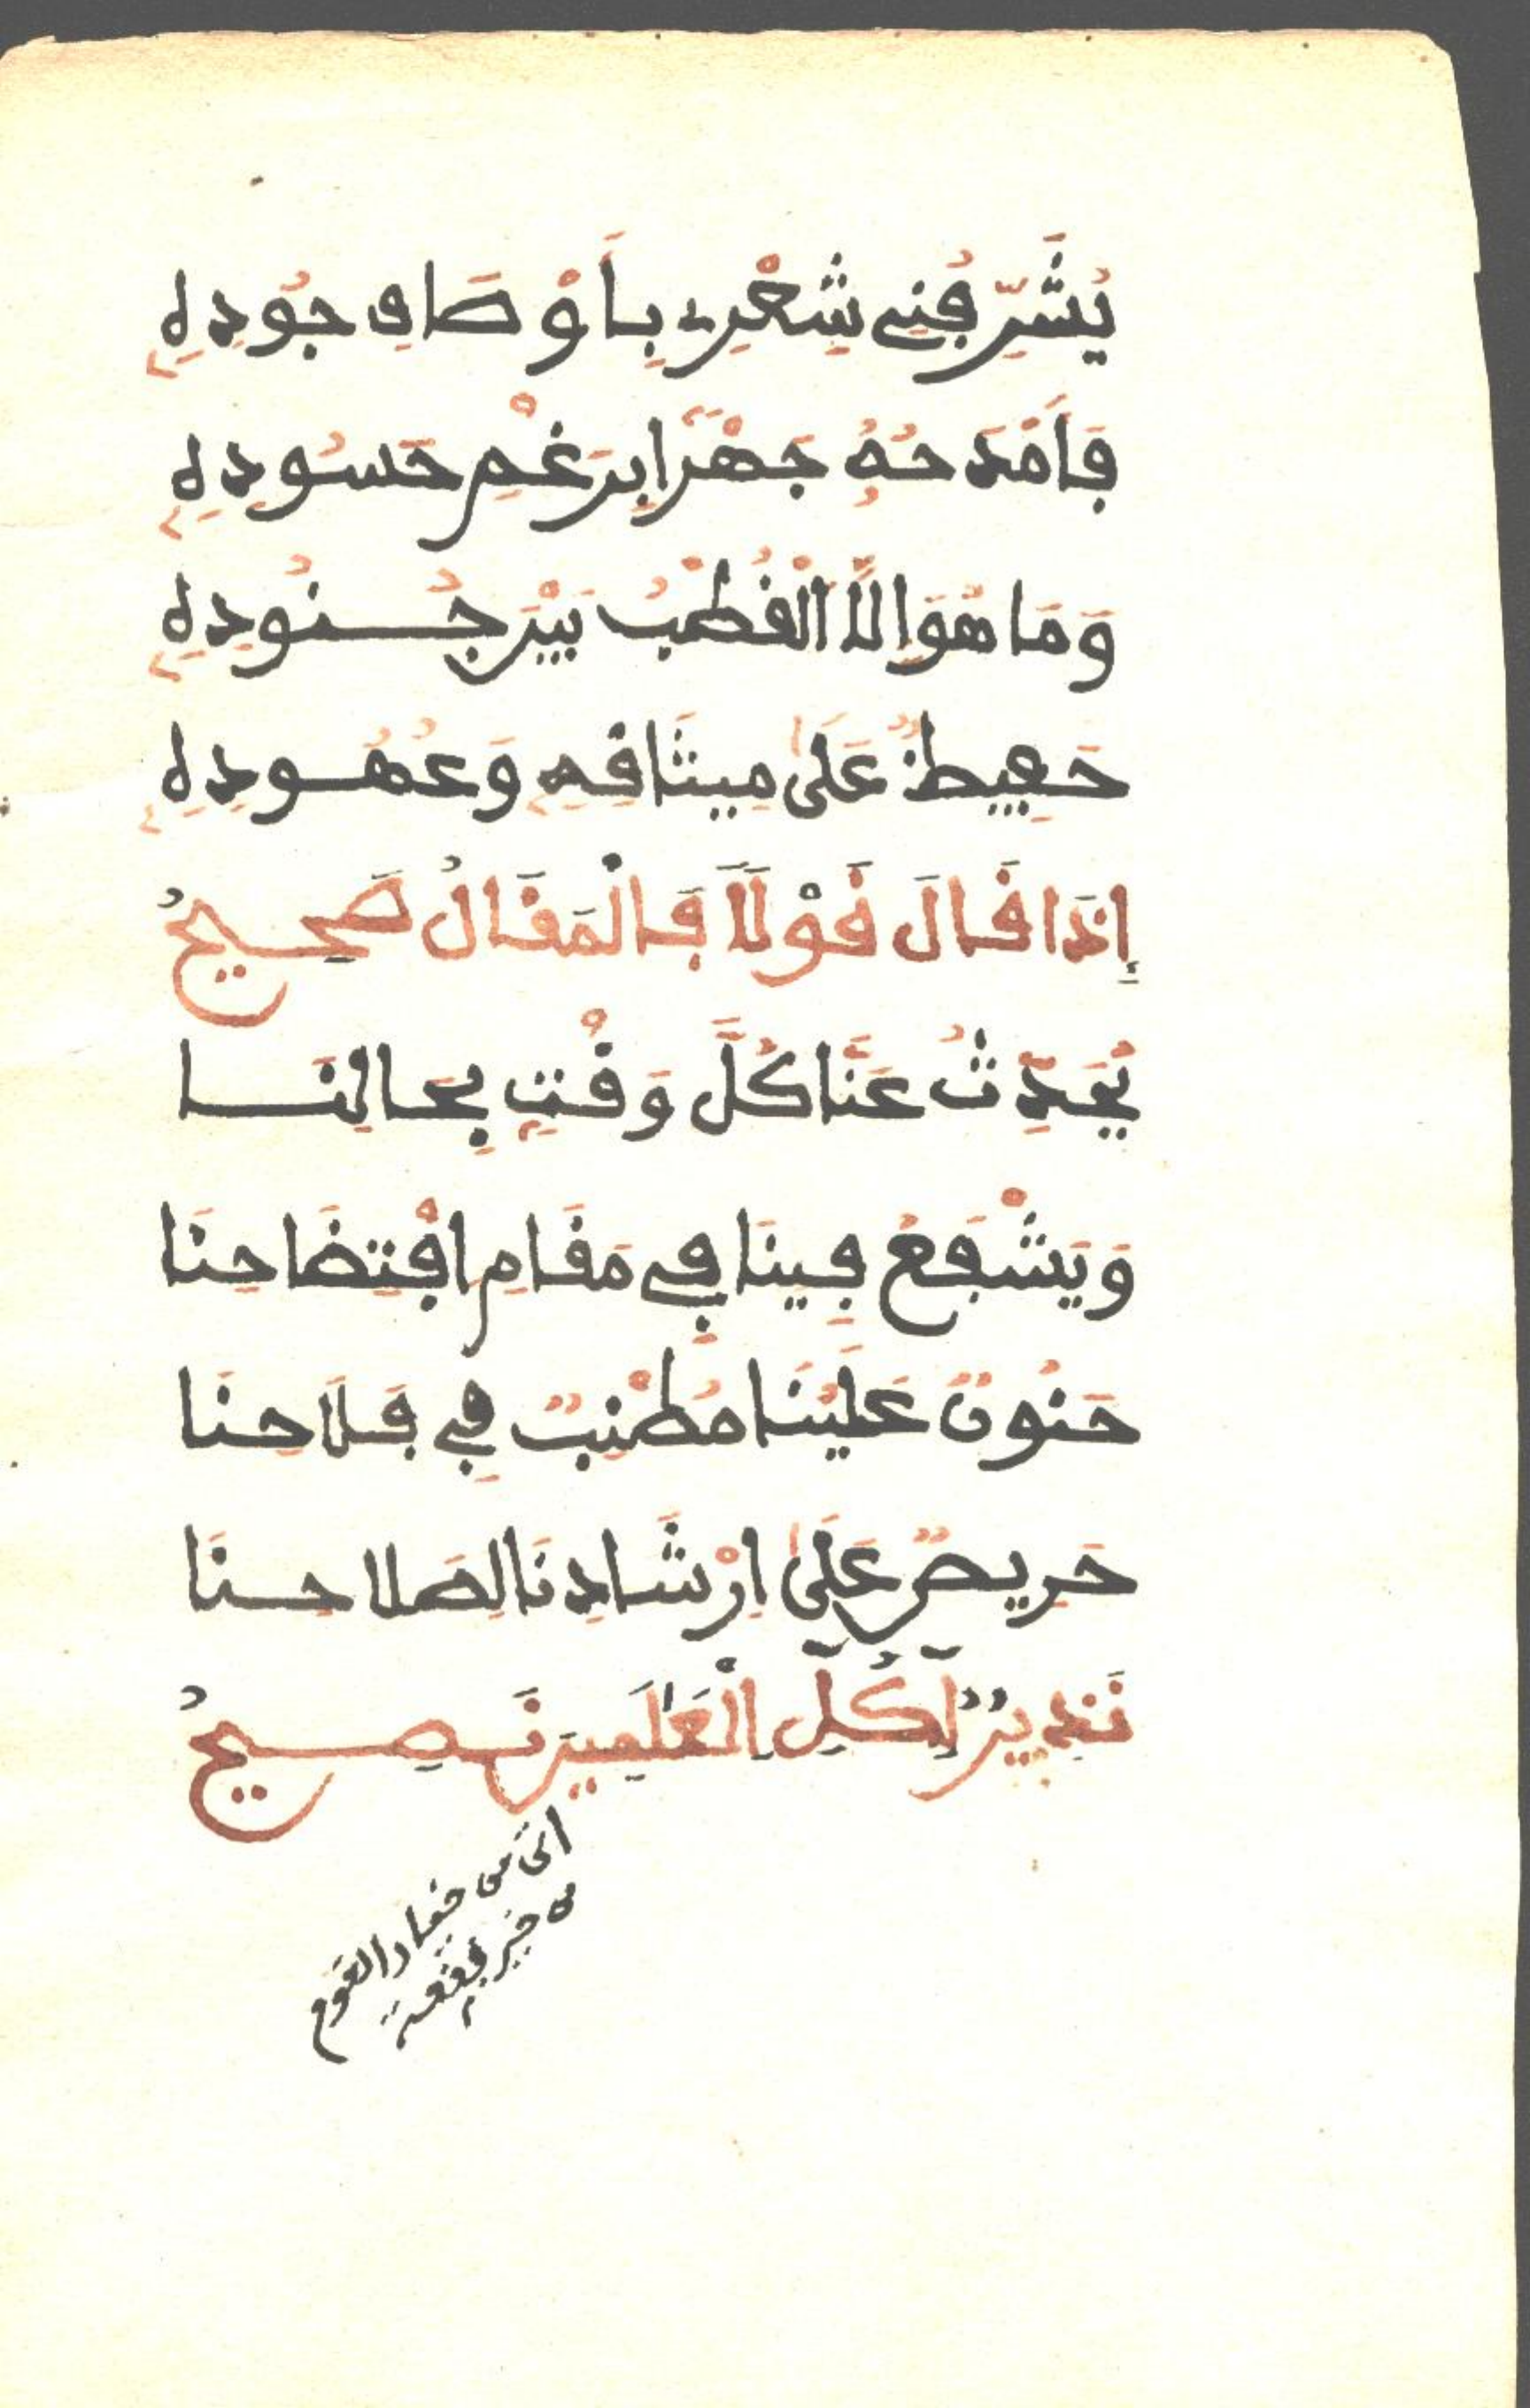 يُشَرِّفُنِي شِعْرِي بِأَوْصَافِ جُودِهِ
فَأَمْدَحُهُ جَهْرًا بِرَغْمِ حَسُودِهِ
وَمَا هُوَ إِلَّا الْقُطْبُ بَيْنَ جُنُودِهِ
حَفِيظٌ عَلَىٰ مِيثَاقِهِ وَعُهُودِهِ
إِذَا قَالَ قَوْلًا فَالْمَقَالُ صَحِيحُ
يُحَدِّثُ عَنَّا كُلَّ وَقْتٍ بِحَالِنَا
وَيَشْفَعُ فِينَا فِي مَقَامِ افْتِضَاحِنَا
حَنُونٌ عَلَيْنَا مُطْنِبٌ فِي فَلَاحِنَا
حَرِيصٌ عَلَىٰ إِرْشَادِنَا لِصَلَاحِنَا
نَذِيرٌ لِّكُلِّ الْعَٰلَمِينَ نَصِيحُ
اتى من خيار القوم
من خير بقعة